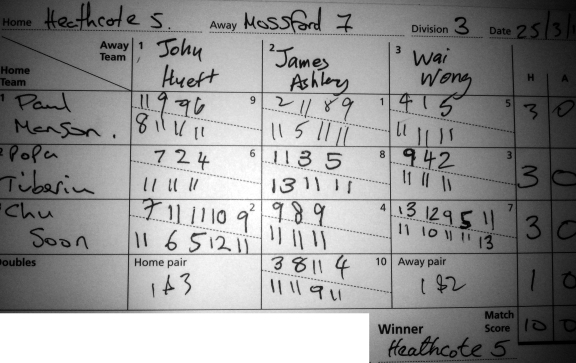 Home Heathcote 5. Away Mossford 7 Division 3 Date 25/3/
Away Team 1 John Huett 2 James Ashley 3 Wai Wong
Home Team H A
1 Paul Manson. 9 1 5 3 0
11 9 9 6 2 11 8 9 4 1 5
8 11 11 11 11 5 11 11 11 11 11
2 Popa Tiberiu 6 8 3 3 0
7 2 4 11 3 5 9 4 2
11 11 11 13 11 11 11 11 11
Chu Soon 2 4 7 3 0
7 11 11 10 9 9 8 9 13 12 9 5 11
11 6 5 12 11 11 11 11 11 10 11 11 13
Doubles Home pair 10 Away pair
1 & 3 3 8 11 4 1 & 2 1 0
11 11 9 11
Winner Match Score 10 0
Heathcote 5